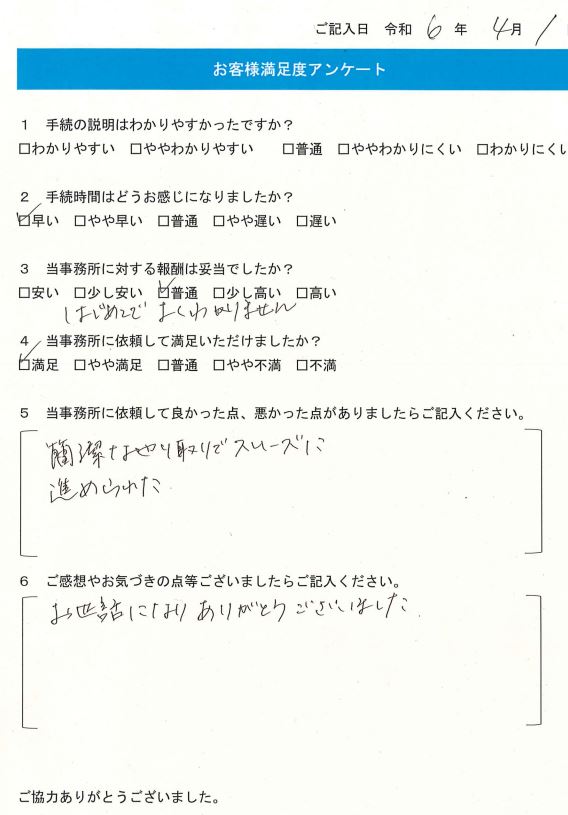 ご記入日 令和 6 年 4月 1
お客様満足度アンケート
1 手続の説明はわかりやすかったですか？
□わかりやすい □ややわかりやすい □普通 □ややわかりにくい □わかりにくい
2 手続時間はどうお感じになりましたか？
☑早い □やや早い □普通 □やや遅い □遅い
3 当事務所に対する報酬は妥当でしたか？
□安い □少し安い ☑普通 □少し高い □高い
はじめてで よくわかりません
4 当事務所に依頼して満足いただけましたか？
☑満足 □やや満足 □普通 □やや不満 □不満
5 当事務所に依頼して良かった点、悪かった点がありましたらご記入ください。
簡潔なやり取りでスムーズに
進められた
6 ご感想やお気づきの点等ございましたらご記入ください。
お世話になりありがとうございました
ご協力ありがとうございました。